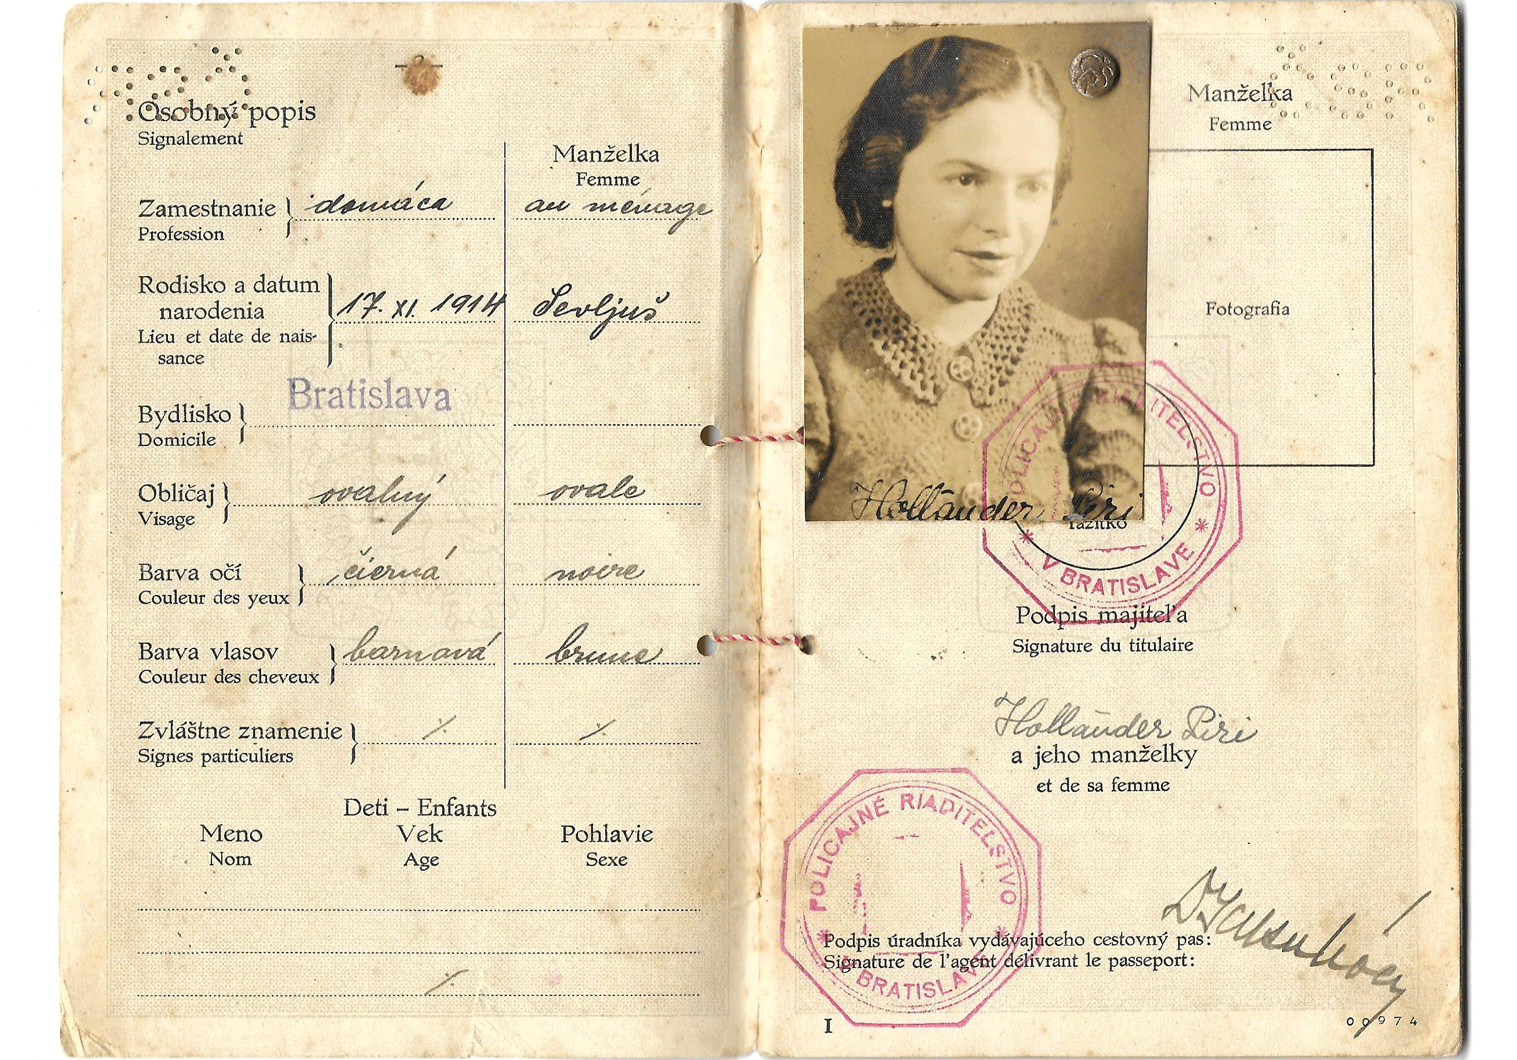 Osobný popis
Signalement
Manželka
Femme
Zamestnanie } domáca au ménage
Profession
Rodisko a datum
narodenia } 17. XI. 1914 Sevljuš
Lieu et date de nais-
sance
Bydlisko } Bratislava
Domicile
Obličaj } ovalný ovale
Visage
Barva očí } čierná noire
Couleur des yeux
Barva vlasov } barnavá brune
Couleur des cheveux
Zvláštne znamenie } ⁒ ⁒
Signes particuliers
Deti – Enfants
Meno Vek Pohlavie
Nom Age Sexe
⁒
Manželka
Femme
Fotografia
Holländer Piri
POLICAJNÉ RIADITEĽSTVO
* V BRATISLAVE *
Podpis majiteľa
Signature du titulaire
Holländer Piri
a jeho manželky
et de sa femme
POLICAJNÉ RIADITEĽSTVO
* V BRATISLAVE *
Podpis úradníka vydávajúceho cestovný pas:
Signature de l'agent délivrant le passeport:
I
00974